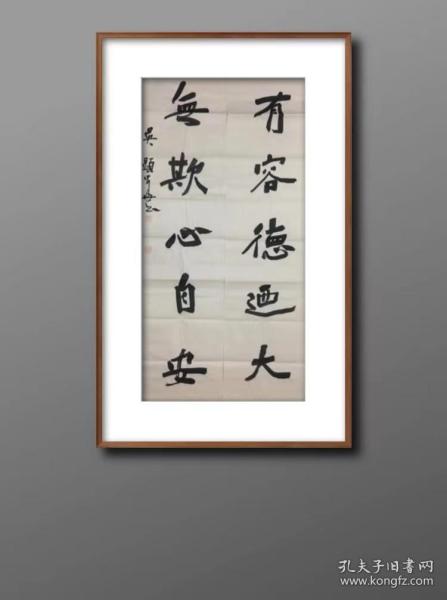 有容德迺大
無欺心自安
吴
孔夫子旧书网
www.kongfz.com